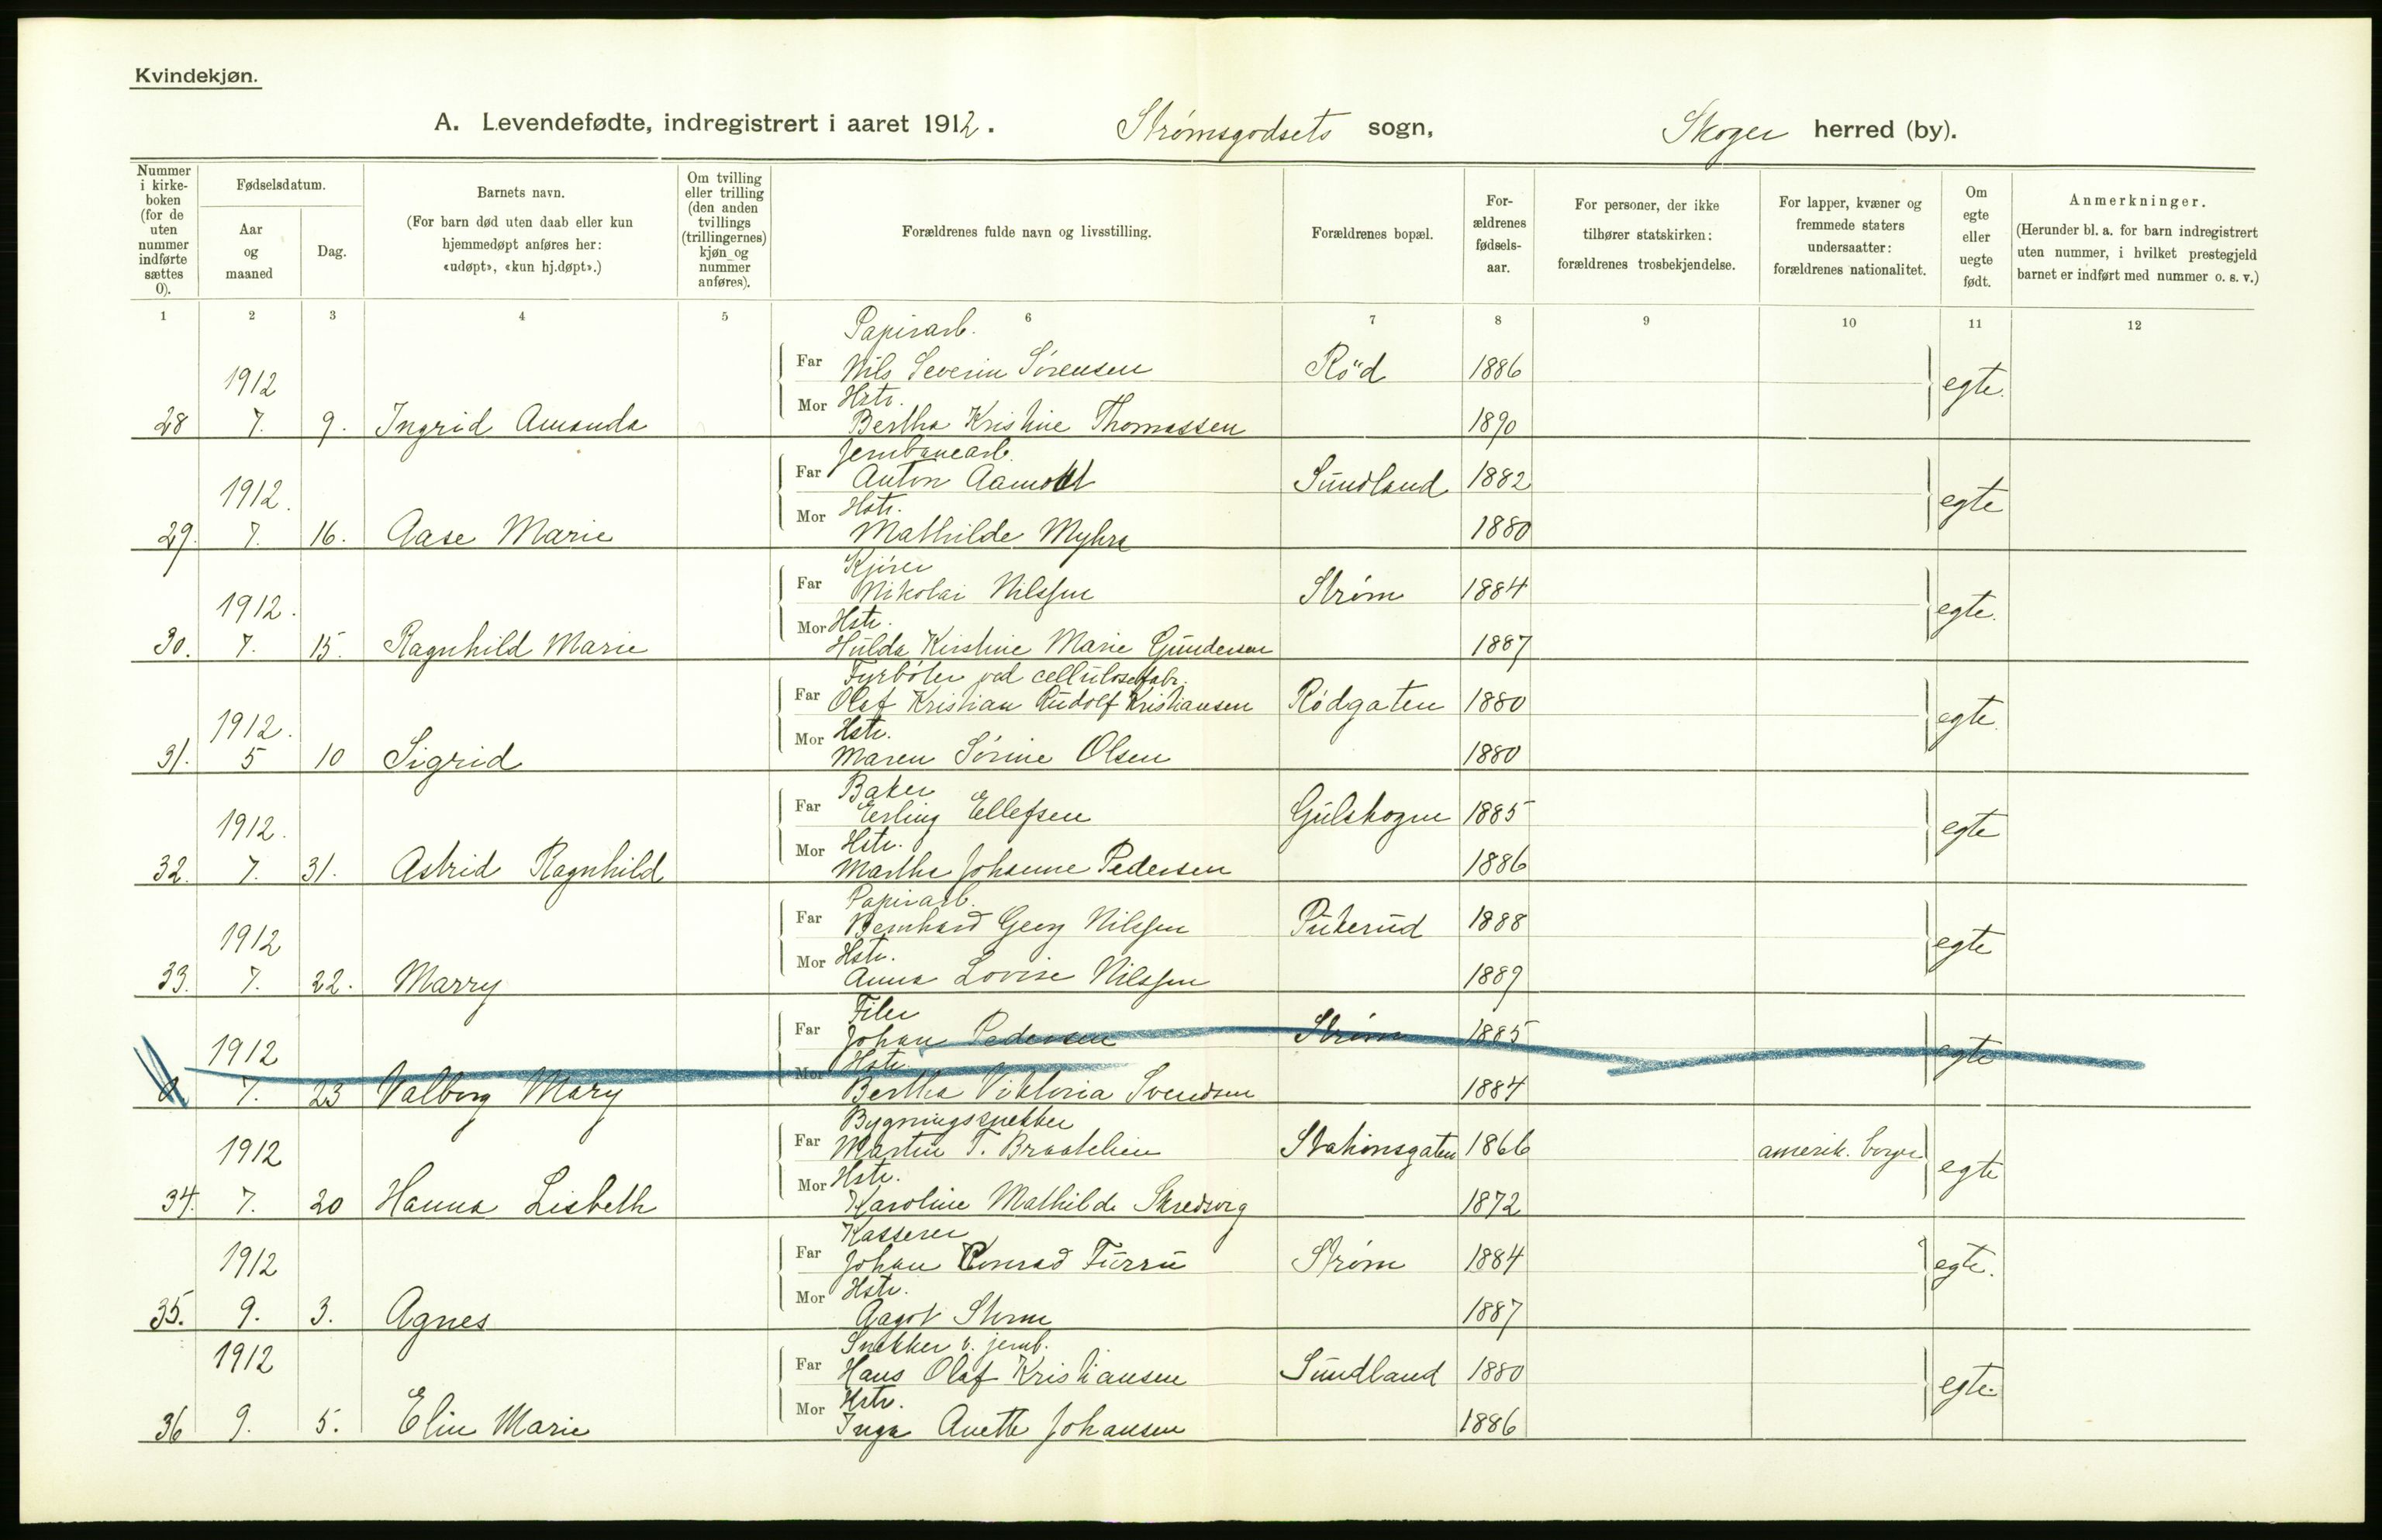 Kvindekjøn.
A. Levendefødte, indregistrert i aaret 1912. Strømsgodsets sogn, Skoger herred (by).
Nummer i kirke-boken (for de uten nummer indførte sættes 0).
Fødselsdatum.
Aar og maaned
Dag.
Barnets navn.
(For barn død uten daab eller kun hjemmedøpt anføres her: «udøpt», «kun hj.døpt».)
Om tvilling eller trilling (den anden tvillings (trillingernes) kjøn og nummer anføres).
Forældrenes fulde navn og livsstilling.
Forældrenes bopæl.
For-ældrenes fødsels-aar.
For personer, der ikke tilhører statskirken: forældrenes trosbekjendelse.
For lapper, kvæner og fremmede staters undersaatter: forældrenes nationalitet.
Om egte eller uegte født.
Anmerkninger.
(Herunder bl. a. for barn indregistrert uten nummer, i hvilket prestegjeld barnet er indført med nummer o. s. v.)
1 2 3 4 5 6 7 8 9 10 11 12
Papirarb.
1912 Far Nils Severin Sørensen Röd 1886 egte.
Hstr.
28 7. 9. Ingrid Amanda Mor Bertha Kristine Thomassen 1890
Jernbanearb.
1912. Far Anton Aamodt Sundland 1882 egte
Hstr.
29. 7. 16. Aase Marie Mor Mathilde Myhre 1880
Kjører
1912. Far Nikolai Nilssen Strøm 1884 egte.
Hstr.
30. 7. 15. Ragnhild Marie Mor Hulda Kirstine Marie Gundersen 1887
Fyrbøter ved cellulosefabr.
1912. Far Olaf Kristian Rudolf Kristiansen Rødgaten 1880 egte.
Hstr.
31. 5 10 Sigrid Mor Maren Sørine Olsen 1880
Baker
1912. Far Erling Ellefsen Gulskogen 1885 egte
Hstr.
32. 7. 31. Astrid Ragnhild Mor Martha Johanne Pedersen 1886
Papirarb.
1912 Far Bernhard Georg Nilssen Puterud 1888 egte
Hstr.
33. 7. 22. Marry Mor Anna Lovise Nilssen 1889
Filer
1912 Far Johan Pedersen Strøm 1885 egte
Hstr.
7. 23 Valborg Mary Mor Bertha Viktoria Svendsen 1884
Bygningssnekker
1912 Far Martin T. Braatelien Stationsgaten 1866 amerik. borger egte
Hstr.
34. 7. 20 Hanna Lisbeth Mor Karoline Mathilde Skredsvig 1872
Kasserer
1912 Far Johan Conrad Furru Strøm 1884 egte.
Hstr.
35. 9. 3. Agnes Mor Aagot Strøm 1887
Snekker v. jernb.
1912 Far Hans Olaf Kristiansen Sundland 1880 egte.
Hstr.
36 9. 5. Elin Marie Mor Inga Anette Johansen 1886